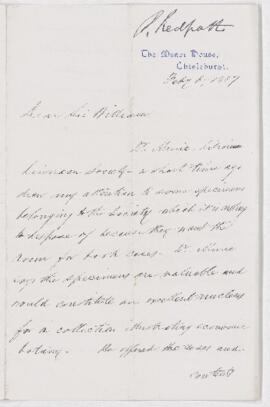 P. Redpath
The Manor House,
Chislehurst.
Feby 6, 1887
Dear Sir William
Dr. Murie, Librarian
Linnean Society - a short time ago
drew my attention to some specimens
belonging to the Society which it is willing
to dispose of because they want the
room for book cases. Dr. Murie
says the specimens are valuable and
would constitute an excellent nucleus
for a collection illustrating economic
botany. He offered the cases and
contents